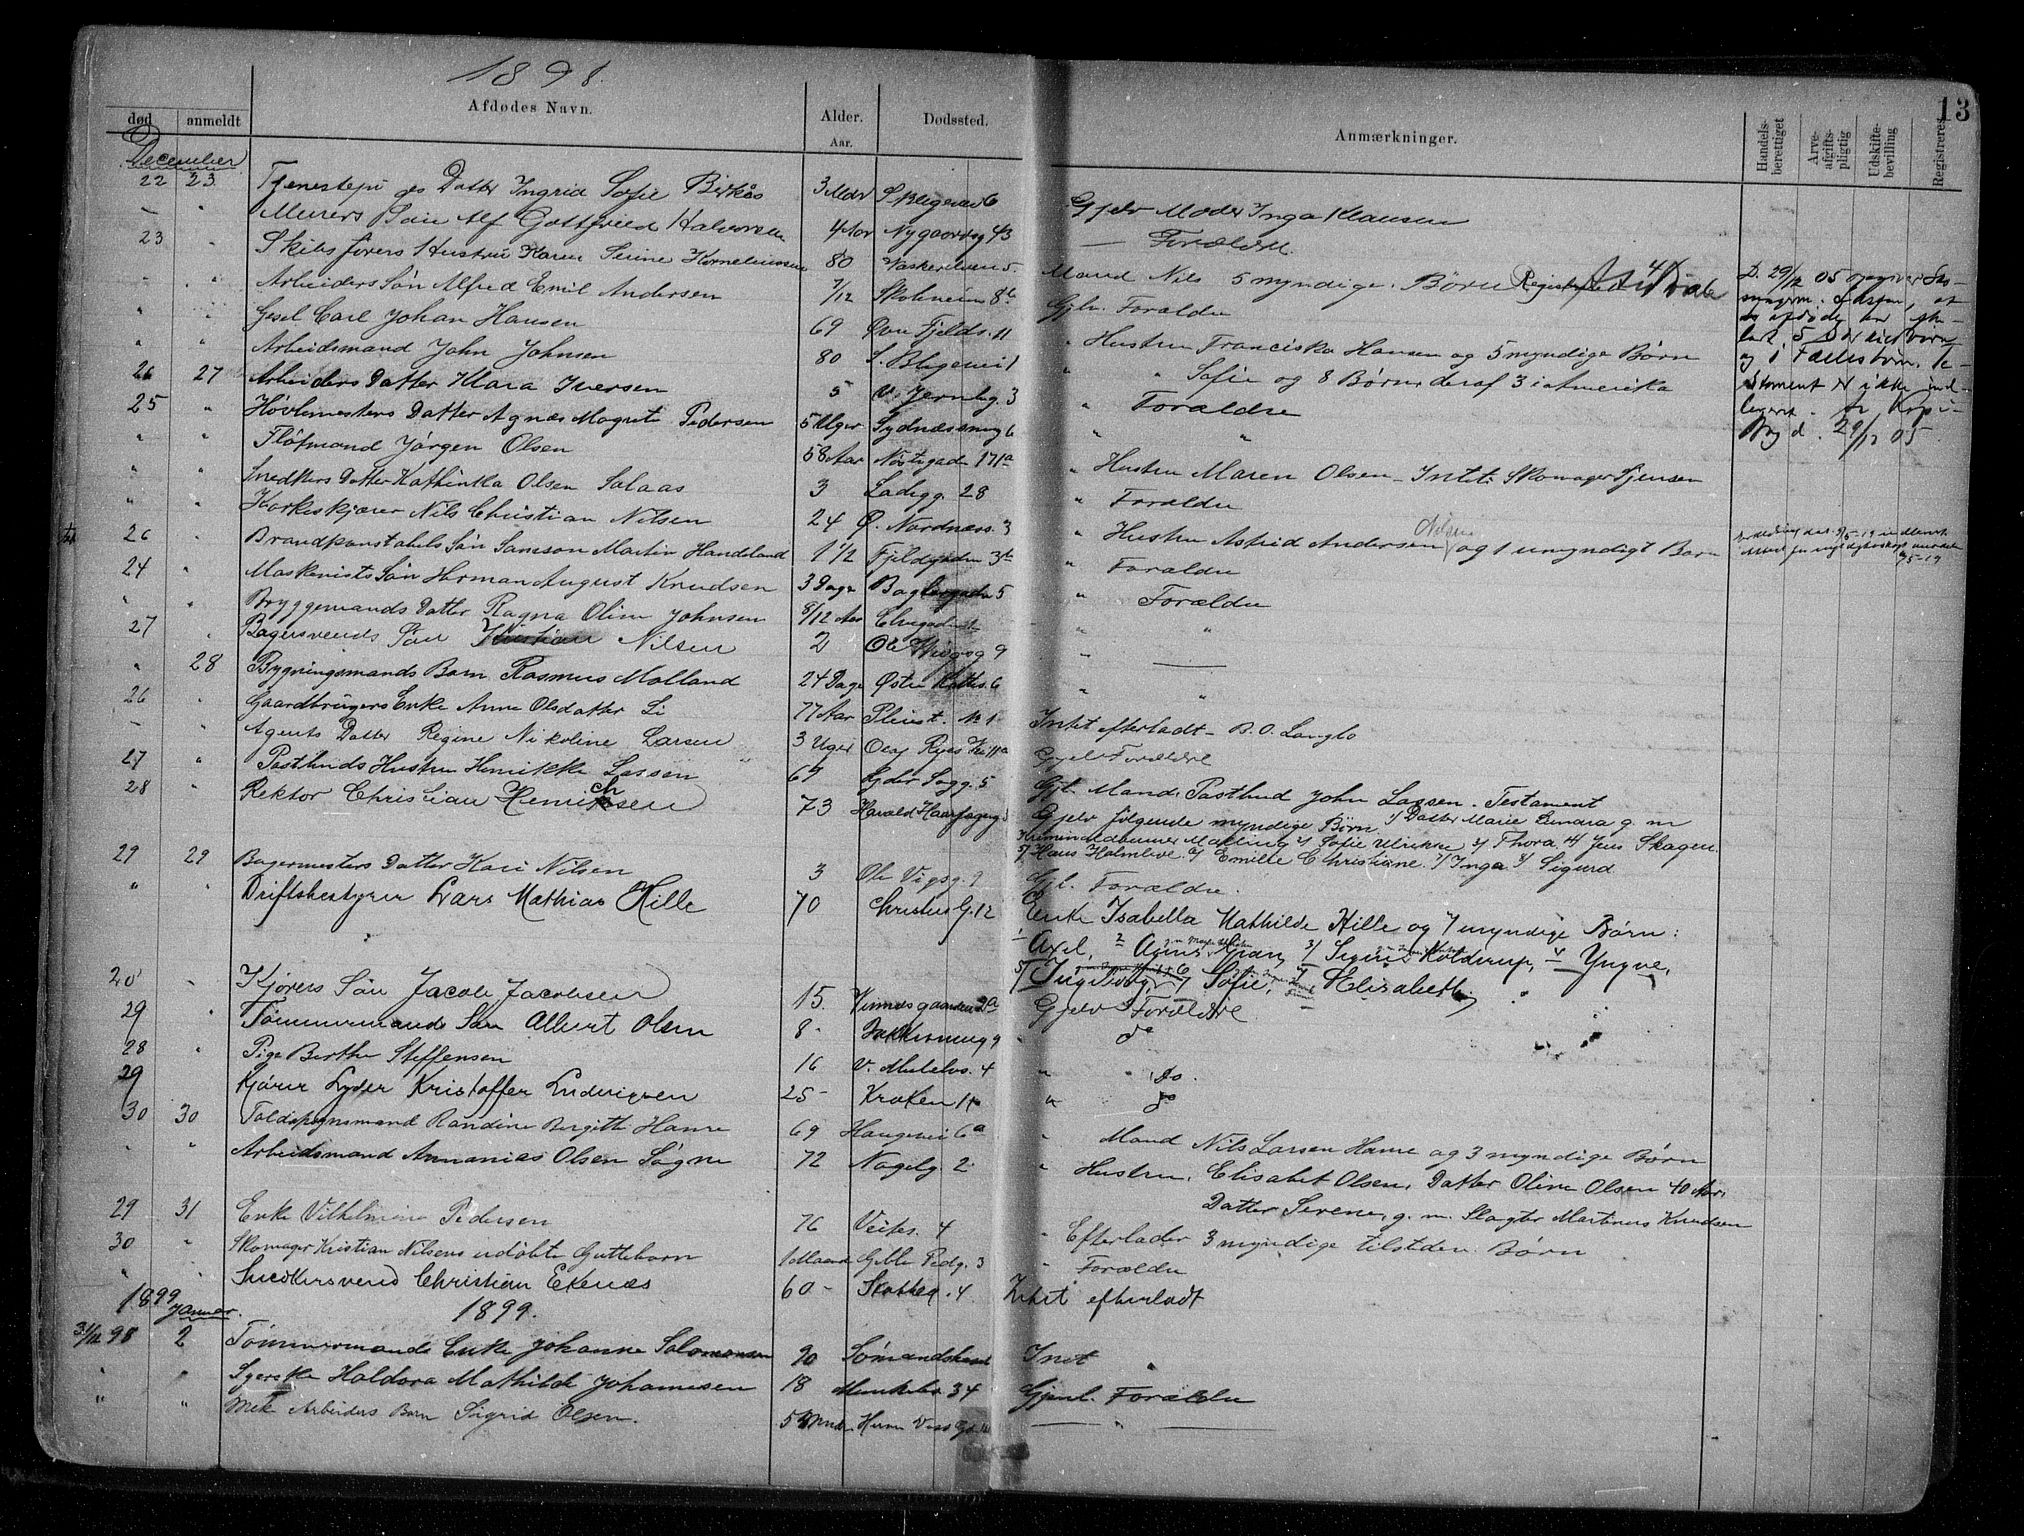 1898.
13
død anmeldt Afdødes Navn. Alder. Aar. Dødssted. Anmærkninger. Handelsberettiget Arveafgiftspligtig Udskiftebevilling Registreret
December
22 23 Tjenestepiges Datter Ingrid Sofie Birkås 3 Mdr S. Blegevei 6 Gjelv Moder Inga Klausen
– " Murers Søn Alf Gottfried Halvorsen 4 Aar Nygaardsg 43 — Forældre.
23 " Skibsførers Hustru Karen Serine Korneliussen 80 Vaskerelven 5. Mand Nils 5 myndige Børn
" " Arbeiders Søn Alfred Emil Andersen 7/12 Skolineien 8b Gjlv. Forældre
" " Gesel Carl Johan Hansen 69 Øvre Fjelds. 11 " Hustru Franciska Hansen og 5 myndige Børn
" " Arbeidsmand John Johnsen 80 S. Blegevei 1 " " Sofie og 8 Børn, deraf 3 i Amerika
26 27 Arbeiders Datter Klara Iversen 5 V. Jernbg. 3 " Forældre
25 " Høvlemesters Datter Agnæs Magrete Pedersen 5 Uger Sydnæssmug 6 " "
" " Fløtmand Jørgen Olsen 58 Aar Nøstegaden 171a " Hustru Maren Olsen – Intet: Skomager Tjensen
" " Snedkers Datter Kathinka Olsen Salaas 3 Ladegg. 28 " Forældre
" " Korkeskjærer Nils Christian Nilsen 24 Ø. Nordnæss. 3 " Hustru Astrid Andersen Nilsen og 1 umyndigt Barn
26 " Brandkonstabels Søn Samson Martin Handeland 1 1/2 Fjeldgaden 3b " Forældre
24 " Maskenists Søn Herman August Knudsen 3 Dage Baglergaden 5 " Forældre
" " Bryggemands Datter Ragna Oline Johnsen 8/12 Aar Elvegaden " "
27 " Bagersvends Søn Kristian Nilsen 2 Ole Vigsg 9 " —
" 28 Bygningsmands Barn Rasmus Molland 24 Dage Østre 6 " "
26 " Gaardbrugers Enke Anne Olsdatter Li 77 Aar Pleiest. No 1 Intet efterladt – B. O. Langlo
– " Agents Datter Regine Nikoline Larsen 3 Uger Olaf Ryes Vei 11a Gjel Forældre
27 " Postbuds Hustru Henrikke Lassen 67 Lyder Sagg. 5 Gjl. Mand, Postbud John Lassen. Testament
28 " Rektor Christian Henrichsen 73 Harald Haarfagersg Gjelv følgende myndige Børn 1/ Datter Marie g. m
Malling 2/ Sofie Ulrikke 3/ Thora 4/ Jens Skagen
5/ Hans 6/ Emilie Christiane 7/ Inga 8/ Sigurd
29 29 Bagermesters Datter Kari Nilsen 3 Ole Vigsg. 9 Gjl. Forældre.
" " Driftsbestyrer Lars Mathias Hille 70 Christies G. 12 Enke Isabella Mathilde Hille og 7 myndige Børn:
1 Axel, 2 Agnes Gran, 3/ Sigrid Kolderup, 4 Yngve,
5/ Ingeborg, 6/ Sofie, 7 Elisabeth,
20 " Kjørers Søn Jacob Jacobsen 15. Vinnæsgaarden 2a Gjelv Forældre
29 " Tømmermands Søn Albert Olsen 8 – 9 " do
28 " Pige Berthe Steffensen 16 V. Muhelvs. 4 " " do.
29 Kjører Lyder Kristoffer Ludvigsen 25 – Kroken 11 " do
30 30 Toldopsynsmand Randine Bergitte Hanre 69 Haugevei 6a " Mand Nils Larsen Hanre og 3 myndige Børn
" " Arbeidsmand Annanias Olsen Søgne 72 Nagelg. 2 " Hustru, Elisabet Olsen, Datter Oline Olsen 40 Aar,
Datter Serene, g. m. Slagter Martinus Knudsen
29 31 Enke Vilhelmine Pedersen 76 Veites. 4 " Efterlader 3 myndige tilstden. Børn
30 " Skomager Kristian Nilsens udøbte Guttebarn 1 Maaned Geble Pedg. 3 " Forældre
" " Snedkersvend Christian Ekenæs 60 – Skotteg. 4 Intet efterladt
1899 Januar. 1899.
31/12 98 2 Tømmermands Enke Johanne Salomonsen 90 Sømandshuset Intet "
" " Syerske Haldora Mathilde Johannesen 18 Munkebo 34 Gjenl. Forældre
" " Mek Arbeiders Barn Sigrid Olsen. — " —
D. 29/12 05
Testament er ikke ind-
29/12 05.